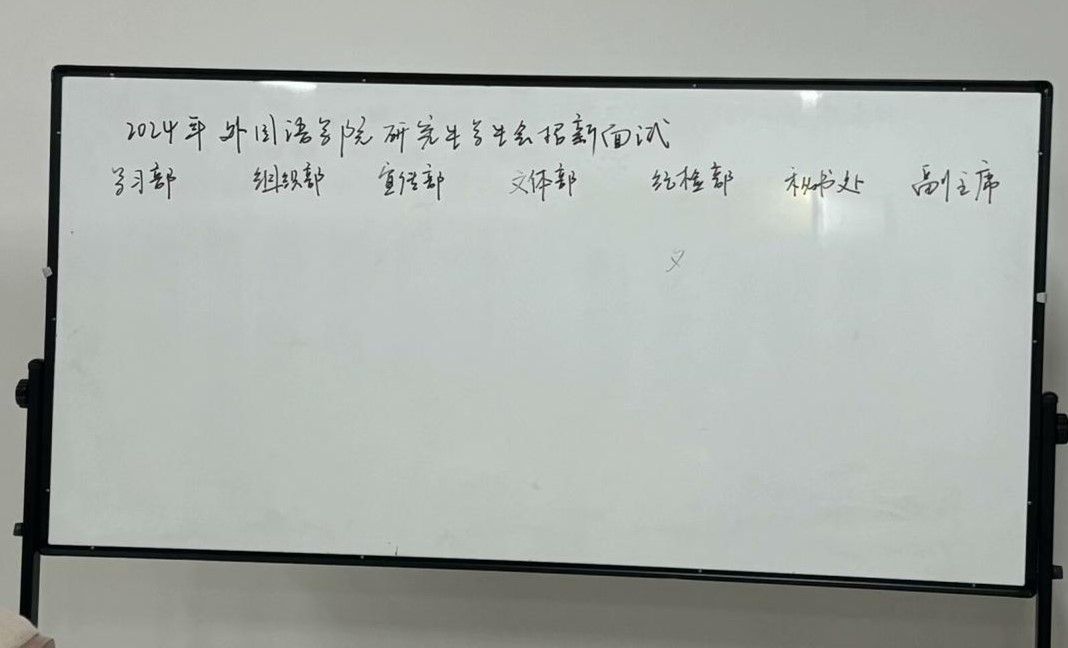 2024年外国语学院研究生学生会招新面试
学习部 组织部 宣传部 文体部 纪检部 秘书处 副主席